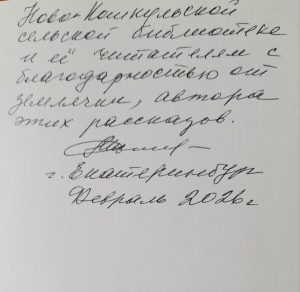 Ново-Кошкульской
сельской библиотеке
и её читателям с
благодарностью от
землячки, автора
этих рассказов.
г. Екатеринбург
Февраль 2026 г